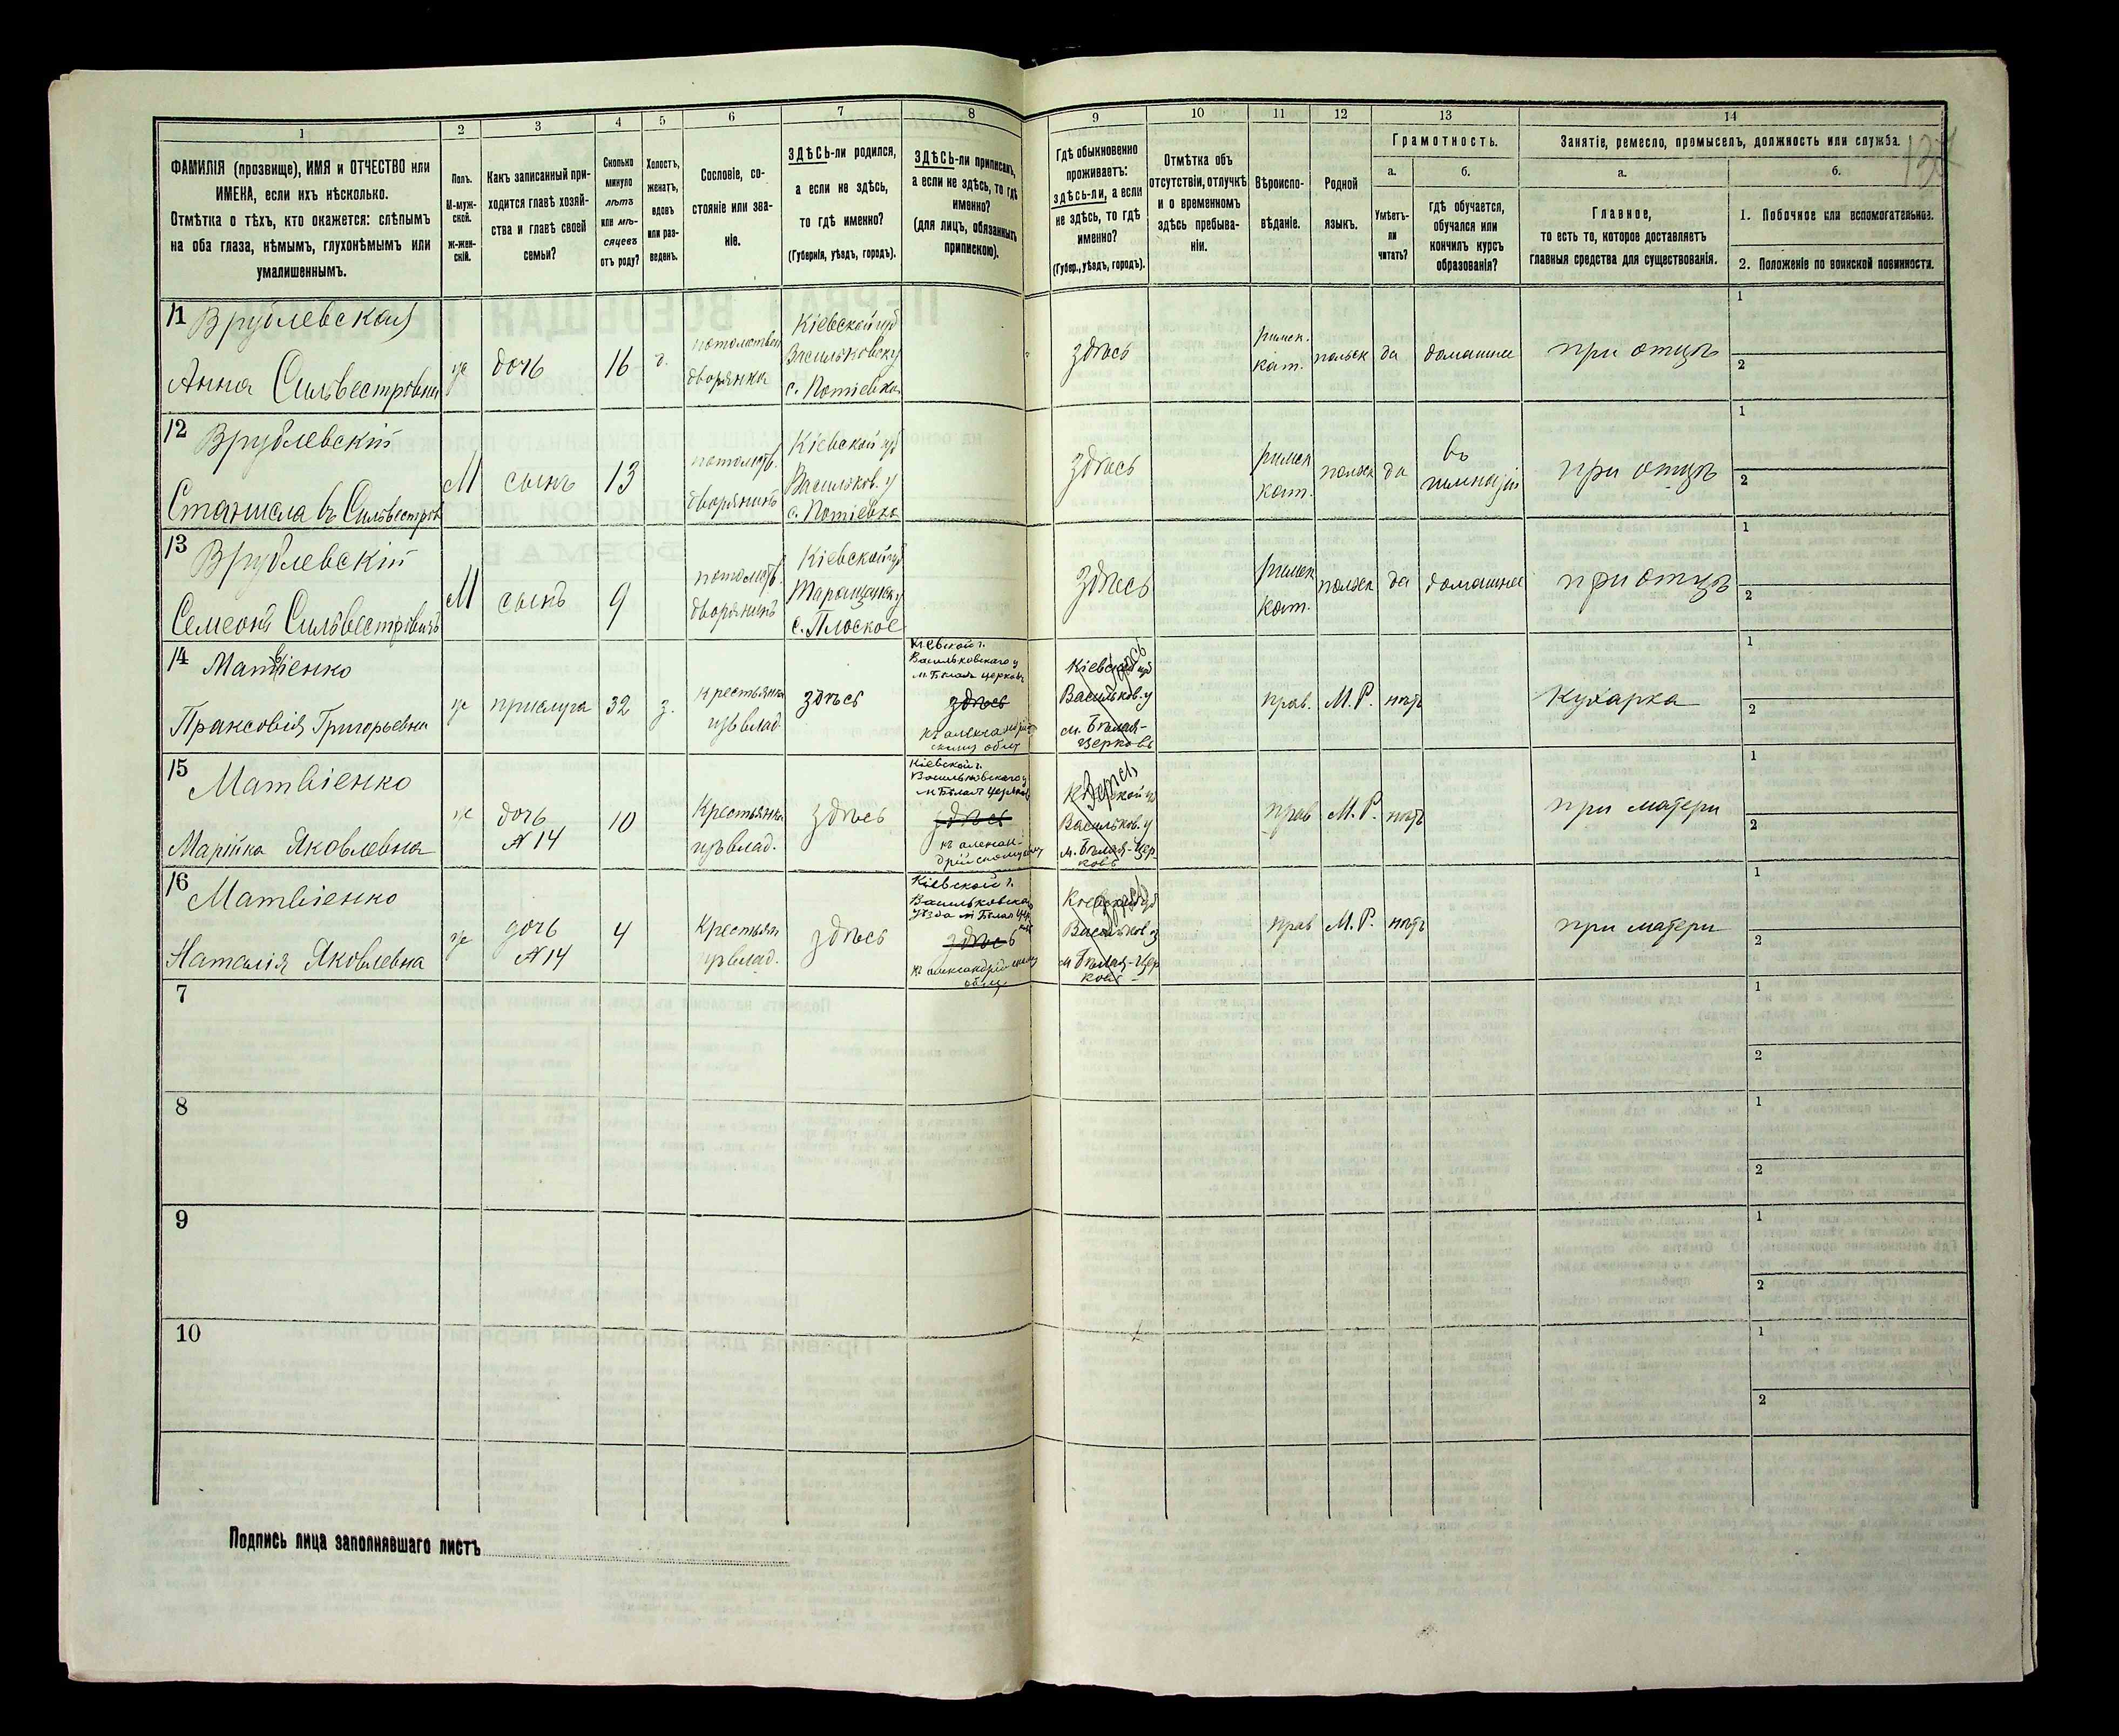 1 2 3 4 5 6 7 8 9 10 11 12 13 14
ФАМИЛІЯ (прозвище), ИМЯ и ОТЧЕСТВО или
ИМЕНА, если ихъ нѣсколько.
Отмѣтка о тѣхъ, кто окажется: слѣпымъ
на оба глаза, нѣмымъ, глухонѣмымъ или
умалишеннымъ.
Полъ.
М-муж-
ской.
Ж-жен-
скій.
Какъ записанный при-
ходится главѣ хозяй-
ства и главѣ своей
семьи?
Сколько
минуло
лѣтъ
или мѣ-
сяцевъ
отъ роду?
Холостъ,
женатъ,
вдовъ
или раз-
веденъ.
Сословіе, со-
стояніе или зва-
ніе.
ЗДѢСЬ-ли родился,
а если не здѣсь,
то гдѣ именно?
(Губернія, уѣздъ, городъ).
ЗДѢСЬ-ли приписанъ,
а если не здѣсь, то гдѣ
именно?
(для лицъ, обязанныхъ
припискою).
Гдѣ обыкновенно
проживаетъ:
здѣсь-ли, а если
не здѣсь, то гдѣ
именно?
(Губер., уѣздъ, городъ).
Отмѣтка объ
отсутствіи, отлучкѣ
и о временномъ
здѣсь пребыва-
ніи.
Вѣроиспо-
вѣданіе.
Родной
языкъ.
Грамотность.
а.
Умѣетъ-
ли
читать?
б.
гдѣ обучается,
обучался или
кончилъ курсъ
образованія?
Занятіе, ремесло, промыселъ, должность или служба.
а.
Главное,
то есть то, которое доставляетъ
главныя средства для существованія.
б.
1. Побочное или вспомогательное.
2. Положеніе по воинской повинности.
11 Врублевская
Анна Сильвестровна
ж
дочь
16
потомствен
дворянка
Кіевской губ
Васильковску
с. Потіевка
здѣсь
римск.
кат.
польск
да
домашнее
при отцѣ
1
2
12 Врублевскій
Станиславъ Сильвестров
М
сынъ
13
потомств.
дворянинъ
Кіевской губ
Васильков. у
с. Потіевка
здѣсь
римск
кат.
польск
да
въ
гимназіи
при отцѣ
1
2
13 Врублевскій
Семеонъ Сильвестровичъ
М
сынъ
9
потомств.
дворянинъ
Кіевской губ
Таращан у
с. Плоское
здѣсь
римск
кат.
польск
да
домашнее
при отцѣ
1
2
14 Матвіенко
Праксовія Григорьевна
ж
прислуга
32
з.
крестьянка
изъ влад.
здѣсь
Кіевской г.
Васильковскаго у
м. Бѣлая церковь
здѣсь
къ александрій-
скому общ
Кіевской губ
Васильков. у
м. Бѣлая-
Церковь
здѣсь
прав.
М. Р.
нѣтъ
Кухарка
1
2
15 Матвіенко
Марійка Яковлевна
ж
дочь
№ 14
10
Крестьянка
изъ влад.
здѣсь
Кіевской г.
Васильковскаго у
м Бѣлая церковь
здѣсь
къ алексан-
дрійскому
здѣсь
Васильков. у
м. Бѣлая-Цер-
ковь
прав
М. Р.
нѣтъ
при матери
1
2
16 Матвіенко
Наталія Яковлевна
ж
дочь
№ 14
4
Крестьян
изъ влад.
здѣсь
Кіевской г.
Васильковска
уѣзда м Бѣлая Цер
здѣсь
къ александрійскому
общ
Кіевской губ
Васильков у
м Бѣлая-Цер
ковь
здѣсь
прав
М. Р.
нѣтъ
при матери
1
2
7
1
2
8
1
2
9
1
2
10
1
2
Подпись лица заполнявшаго листъ